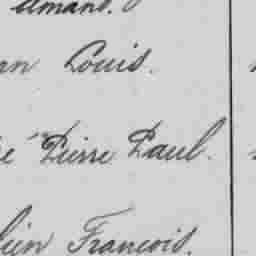 Amand.
an Louis.
é Pierre Paul.
lien François.